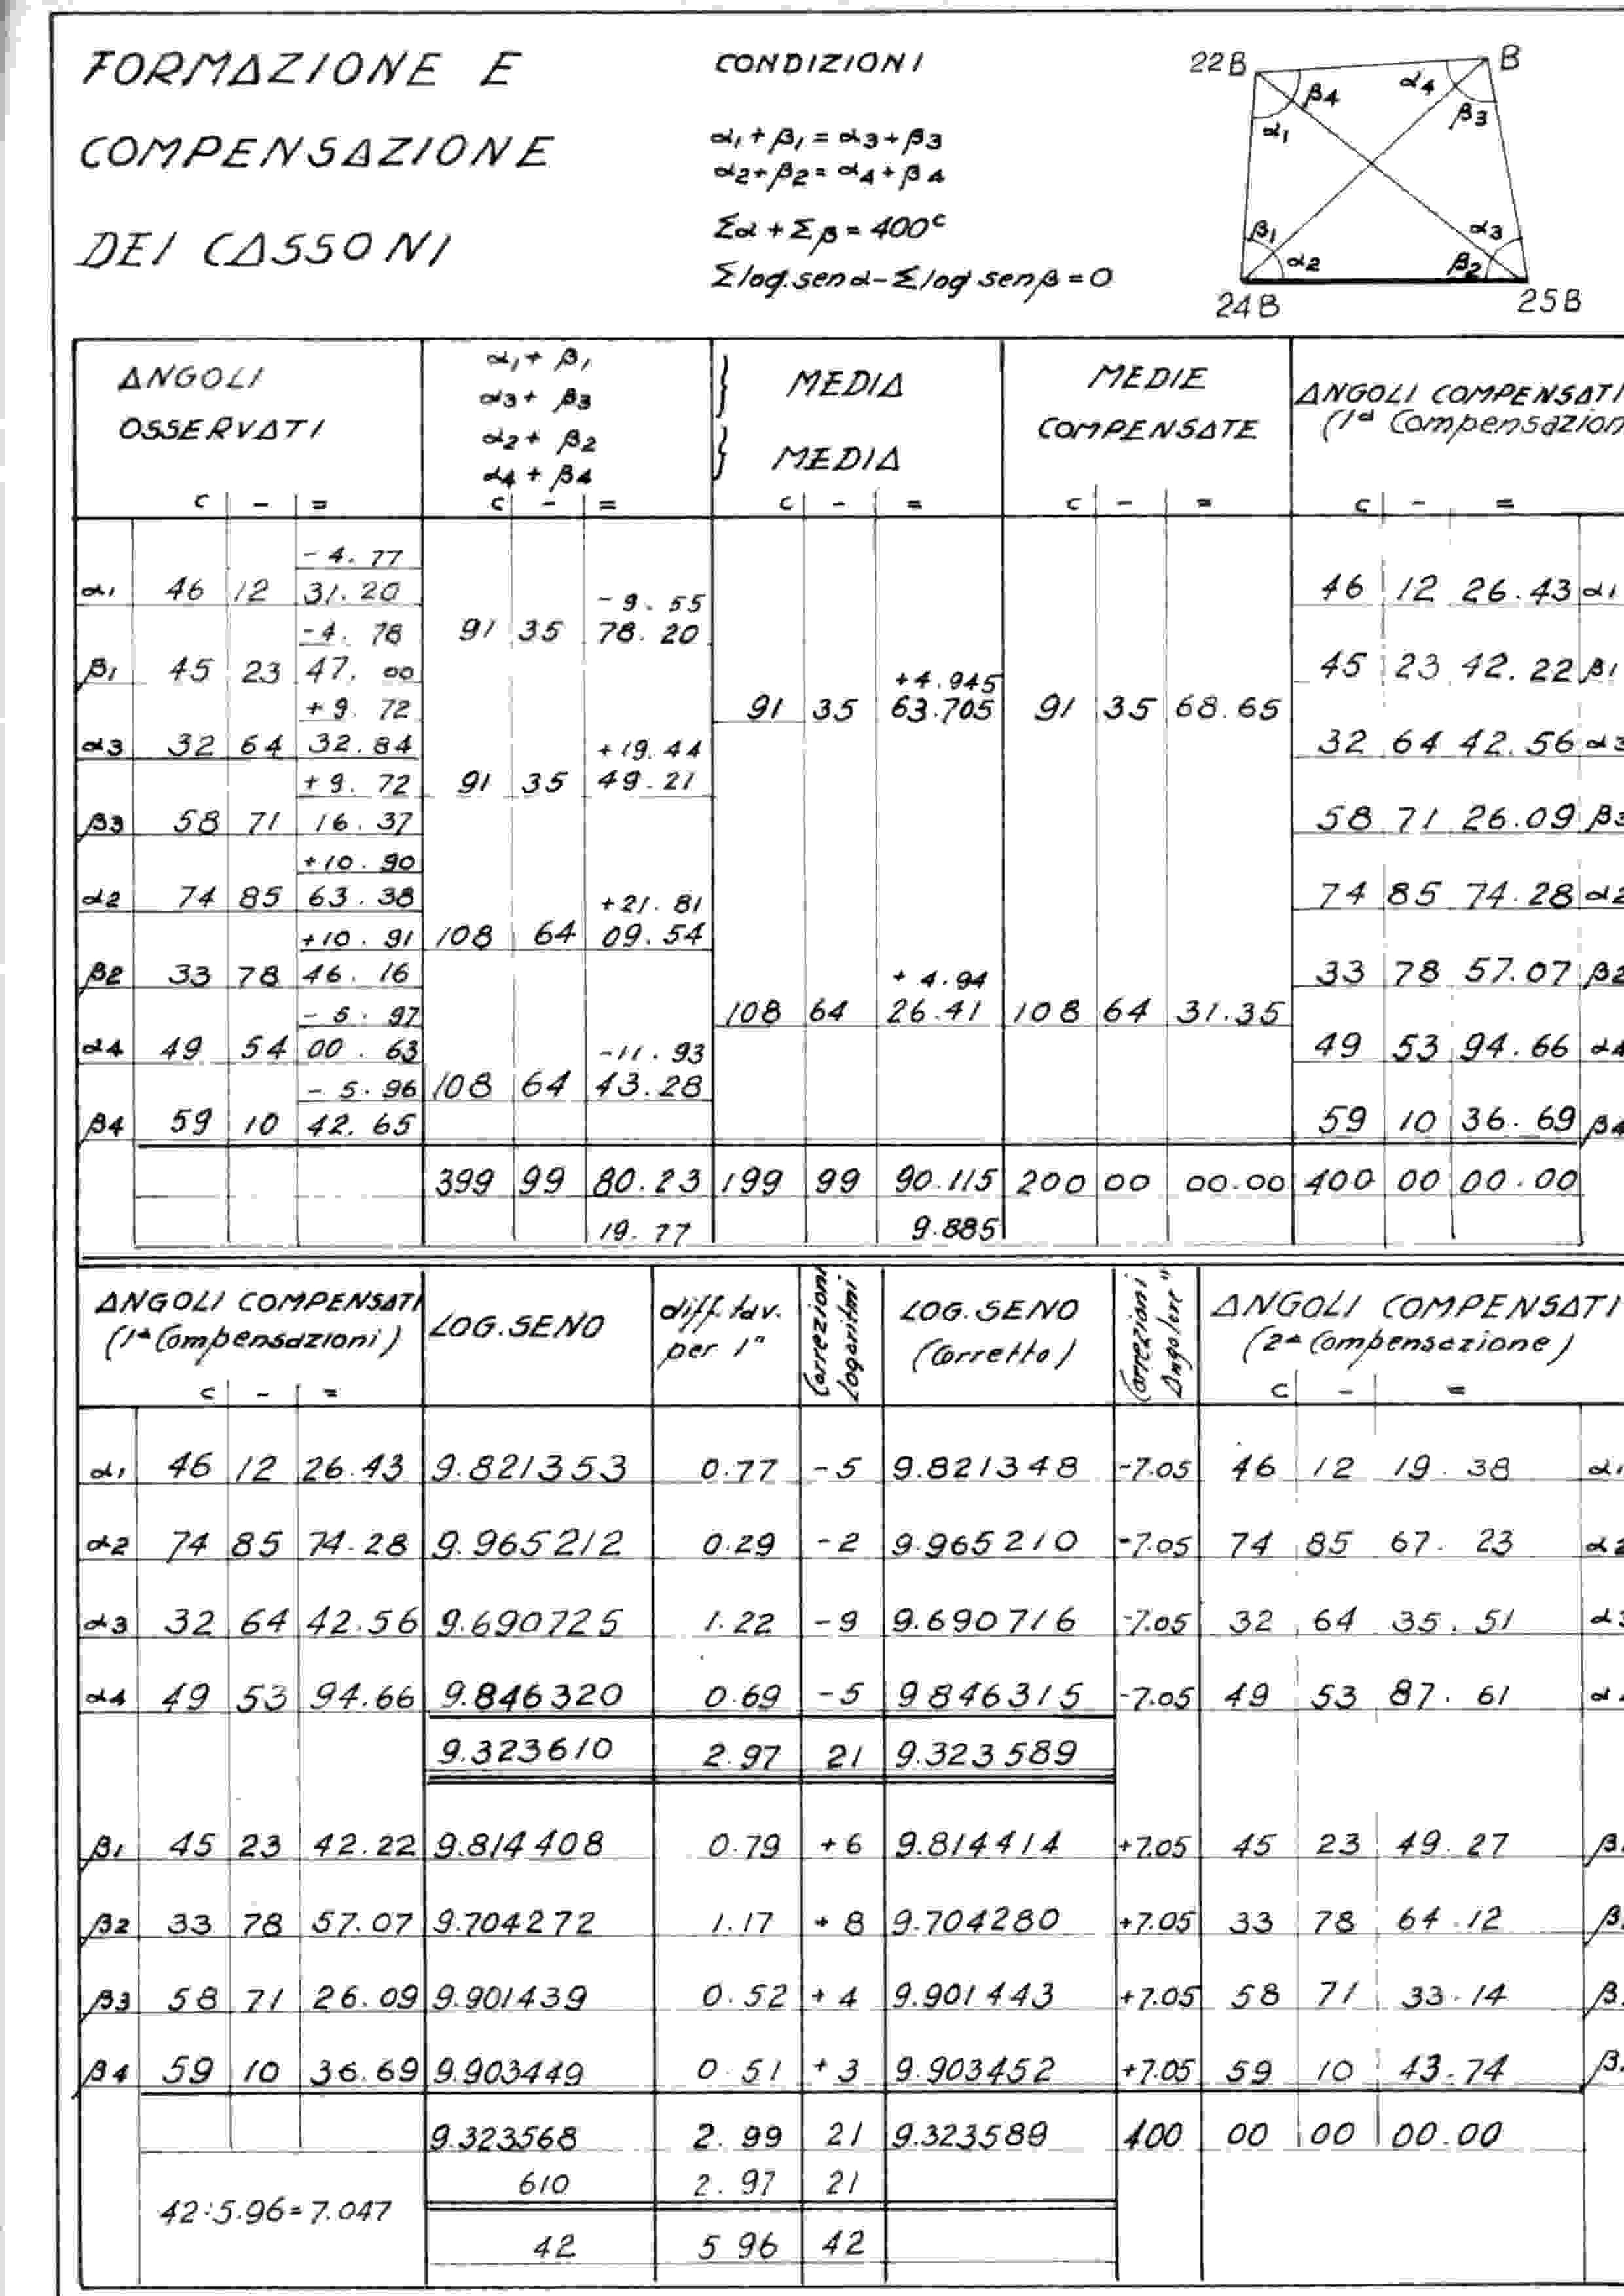 FORMAZIONE E
COMPENSAZIONE
DEI CASSONI
CONDIZIONI
α1+β1=α3+β3
α2+β2=α4+β4
Σα+Σβ=400c
Σlog.senα-Σlog senβ=0
22B B
β4 α4
α1 β3
β1 α3
α2 β2
24B 25B
ANGOLI
OSSERVATI
c - =
α1+ β1
α3+ β3
α2+ β2
α4+ β4
c - =
} MEDIA
} MEDIA
c - =
MEDIE
COMPENSATE
c - =
ANGOLI COMPENSATI
(1a Compensazion
c - =
-4.77
α1 46 12 31.20 -9.55 46 12 26.43 α1
-4.78 91 35 78.20
β1 45 23 47.00 +4.945 45 23 42.22 β1
+9.72 91 35 63.705 91 35 68.65
α3 32 64 32.84 +19.44 32 64 42.56 α3
+9.72 91 35 49.21
β3 58 71 16.37 58 71 26.09 β3
+10.90
α2 74 85 63.38 +21.81 74 85 74.28 α2
+10.91 108 64 09.54
β2 33 78 46.16 +4.94 33 78 57.07 β2
-5.97 108 64 26.41 108 64 31.35
α4 49 54 00.63 -11.93 49 53 94.66 α4
-5.96 108 64 43.28
β4 59 10 42.65 59 10 36.69 β4
399 99 80.23 199 99 90.115 200 00 00.00 400 00 00.00
19.77 9.885
ANGOLI COMPENSATI
(1a Compensazioni)
c - =
LOG.SENO
diff.tav.
per 1"
Correzioni
Logaritmi
LOG.SENO
(Corretto)
Correzioni
Angolare"
ANGOLI COMPENSATI
(2a Compensazione)
c - =
α1 46 12 26.43 9.821353 0.77 -5 9.821348 -7.05 46 12 19.38 α1
α2 74 85 74.28 9.965212 0.29 -2 9.965210 -7.05 74 85 67.23 α2
α3 32 64 42.56 9.690725 1.22 -9 9.690716 -7.05 32 64 35.51 α3
α4 49 53 94.66 9.846320 0.69 -5 9846315 -7.05 49 53 87.61 α
9.323610 2.97 21 9.323589
β1 45 23 42.22 9.814408 0.79 +6 9.814414 +7.05 45 23 49.27 β
β2 33 78 57.07 9.704272 1.17 +8 9.704280 +7.05 33 78 64.12 β
β3 58 71 26.09 9.901439 0.52 +4 9.901443 +7.05 58 71 33.14 β
β4 59 10 36.69 9.903449 0.51 +3 9.903452 +7.05 59 10 43.74 β
9.323568 2.99 21 9.323589 400 00 00 00.00
610 2.97 21
42:5.96=7.047
42 5 96 42